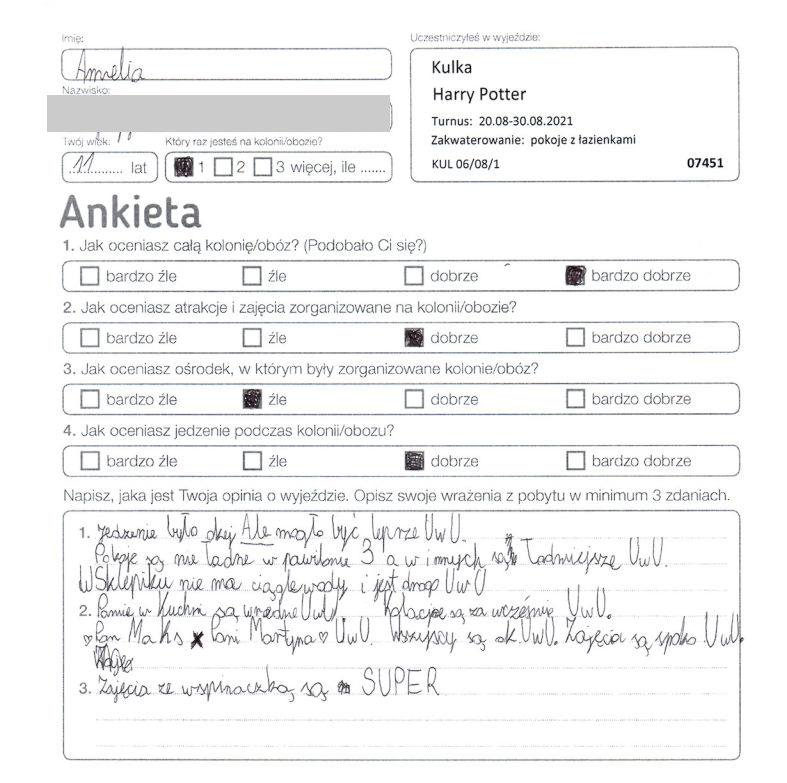 Imię:
Amelia
Nazwisko:
Twój wiek:
Który raz jesteś na kolonii/obozie?
11 lat
1 2 3 więcej, ile .......
Uczestniczyłeś w wyjeździe:
Kulka
Harry Potter
Turnus: 20.08-30.08.2021
Zakwaterowanie: pokoje z łazienkami
KUL 06/08/1 07451
Ankieta
1. Jak oceniasz całą kolonię/obóz? (Podobało Ci się?)
bardzo źle źle dobrze bardzo dobrze
2. Jak oceniasz atrakcje i zajęcia zorganizowane na kolonii/obozie?
bardzo źle źle dobrze bardzo dobrze
3. Jak oceniasz ośrodek, w którym były zorganizowane kolonie/obóz?
bardzo źle źle dobrze bardzo dobrze
4. Jak oceniasz jedzenie podczas kolonii/obozu?
bardzo źle źle dobrze bardzo dobrze
Napisz, jaka jest Twoja opinia o wyjeździe. Opisz swoje wrażenia z pobytu w minimum 3 zdaniach.
1. Jedzenie było okej Ale mogło być leprze UwU.
Pokoje są nie ładne w pawilonie 3 a w innych są Ładniejsze UwU.
W Sklepiku nie ma ciągle wody i jest drogo UwU
2. Panie w Kuchni są wredne UwU. Kolacje są za wcześnie UwU.
♡Pan Maks x Pani Martyna♡ UwU. Wszyscy są ok UwU. Zajęcia są spoko UwU.
3. Zajęcia ze wspinaczką są SUPER